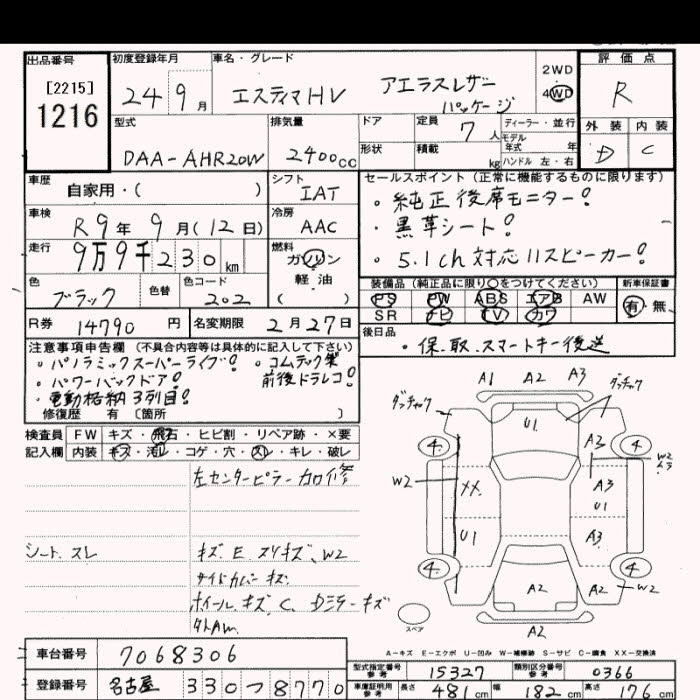 出品番号 初度登録年月 車名・グレード 評価点
[2215] 1216
24年 9月 エスティマHV アエラスレザーパッケージ 2WD 4WD R
型式 排気量 ドア 定員 7人 ディーラー・並行 外装 内装
モデル年式 年
DAA-AHR20W 2400cc 形状 積載 kg ハンドル 左・右 D C
車歴 自家用・( ) シフト IAT
セールスポイント(正常に機能するものに限ります)
・純正後席モニター!
車検 R9年 9月(12日) 冷房 AAC
・黒革シート!
走行 9万9千230km 燃料 ガソリン 軽油 ( )
・5.1ch対応11スピーカー!
色 ブラック 色替 色コード 202
装備品(純正品に限り○をつけてください) 新車保証書
PS PW ABS エアB AW 有・無
SR ナビ TV カワ
R券 14790円 名変期限 2月27日
後日品
・保、取、スマートキー後送
注意事項申告欄(不具合内容等は具体的に記入して下さい)
・パノラミックスーパーライブ! ・コムテック製
・パワーバックドア! 前後ドラレコ!
・電動格納3列目!
修復歴 有 〔箇所 〕
検査員 FW キズ・飛石・ヒビ割・リペア跡・×要
記入欄 内装 キズ・汚レ・コゲ・穴・スレ・キレ・破レ
左センターピラー カロ修
シート、スレ
キズ、E、スリキズ、W2
サイドカバー キズ
ホイール キズ、C、Dミラーキズ
A1 A2 A3
ダッチャク ダッチャク
U1
4 A3 4
W2 W2
XX A3
U1
U1 A3
4 4
A2 A2 W2
A2
スペア
A-キズ E-エクボ U-凹み W-補修跡 S-サビ C-腐食 XX-交換済
車台番号 7068306
型式指定番号 参考 15327 類別区分番号 参考 0366
登録番号 名古屋 330 つ 8770
車庫証明用 参考 長さ 481cm 幅 182cm 高さ 176cm